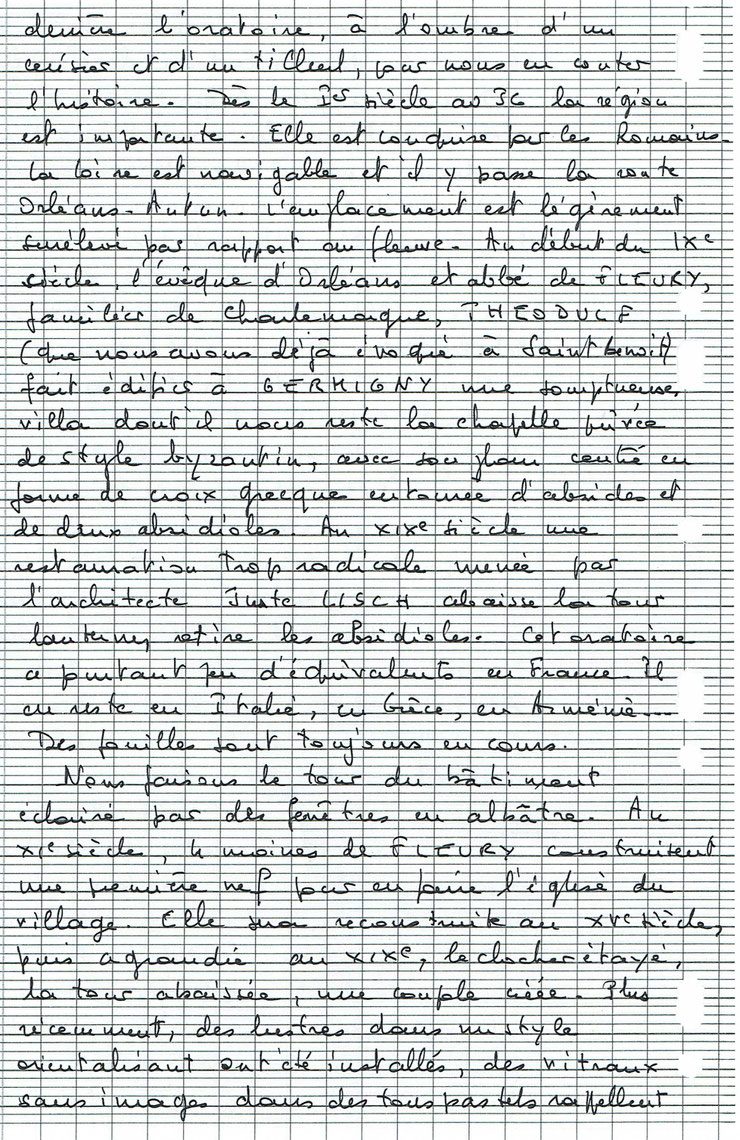 derrière l'oratoire, à l'ombre d'un
cerisier et d'un tilleul, pour nous en conter
l'histoire. Dès le Ier siècle av JC la région
est importante. Elle est conquise par les Romains.
La Loire est navigable et il y passe la route
Orléans-Autun. L'emplacement est légèrement
surélevé par rapport au fleuve. Au début du IXe
siècle, l'évêque d'Orléans et abbé de FLEURY,
familier de Charlemagne, THEODULF
(que nous avons déjà évoqué à Saint Benoit)
fait édifier à GERMIGNY une somptueuse
villa dont il nous reste la chapelle privée
de style byzantin, avec son plan centré en
forme de croix grecque entourée d'absides et
de deux absidioles. Au XIXe siècle une
restauration trop radicale menée par
l'architecte Juste LISCH abaisse la tour
lanterne, retire les absidioles. Cet oratoire
a pourtant peu d'équivalents en France. Il
en reste en Italie, en Grèce, en Arménie...
Des fouilles sont toujours en cours.
Nous faisons le tour du bâtiment
éclairé par des fenêtres en albâtre. Au
XIe siècle, 4 moines de FLEURY construisent
une première nef pour en faire l'église du
village. Elle sera reconstruite au XVe siècle,
puis agrandie au XIXe, le clocher étayé,
la tour abaissée, une coupole créée. Plus
récemment, des lustres dans un style
orientalisant ont été installés, des vitraux
sans images dans des tons pastels rappellent